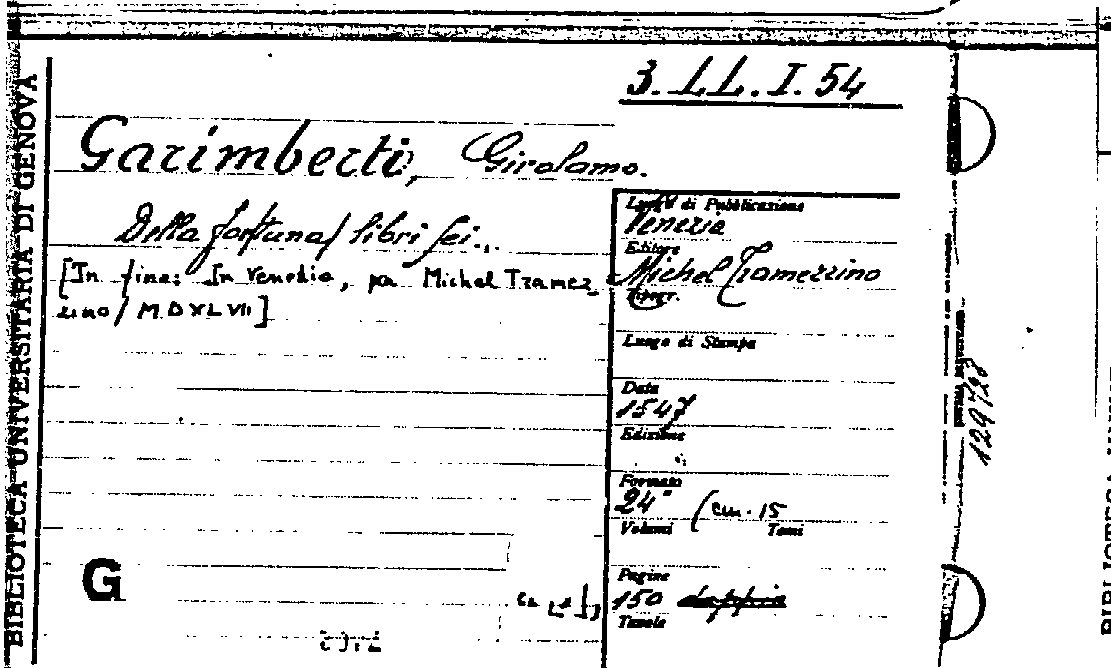 3. LL. I. 54
BIBLIOTECA UNIVERSITARIA DI GENOVA
Garimberti, Girolamo.
Della fortuna/ libri sei..
[In fine: In Venetia, per Michel Tramez
zino / M D XL VII]
Luogo di Pubblicazione
Venezia
Editore
Michel Tramezzino
Tipogr.
Luogo di Stampa
Data
1547
Edizione
Formato
24° (cm. 15
Volumi Tomi
Pagine
150 doppie
Tavole
G
129728